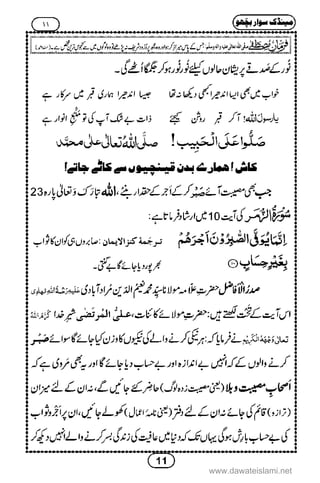 مینڈک سوار بچھو
۱۱
فرمانِ مصطفےٰ
نور کے صدقے پریشان حالوں کیلئے نُور نُور ہو کر جگمگا اُٹھے گی۔
خواب میں بھی ایسا اندھیرا کبھی دیکھا نہ تھا جیسا اندھیرا ہماری قبر میں سرکار ہے
یا رسول اللہ! آ کر قبر روشن کیجئے ذات بے شک آپ کی تو منبعِ انوار ہے
صَلُّوا عَلَى الْحَبِیب! صلَّی اللهُ تعالٰی علٰی محمَّد
کاش! ہمارے بدن قینچیوں سے کاٹے جاتے!
جب بھی مصیبت آئے صَبْر کر کے اَجر کے حقدار بنئے، اللہ تَبَارَکَ وَتعالٰی پارہ 23
سُوْرَۃُ الزُّمَر آیت 10 میں ارشاد فرماتا ہے:
اِنَّمَا یُوَفَّى الصّٰبِرُوْنَ اَجْرَهُمْ
بِغَیْرِ حِسَابٍ ﴿۱۰﴾
ترجَمۂ کنز الایمان : صابروں ہی کو ان کا ثواب
بھرپور دیا جائے گا بے گنتی۔
صدرُ الْاَفاضِل حضرتِ علّامہ مولانا سیِّد محمد نعیم الدّین مُراد آبادی
اس آیت کے تَحت لکھتے ہیں: حضرتِ مولائے کائنات، علیُّ المُرتَضٰی شیرِ خدا
نے فرمایا کہ: ہر نیکی کرنے والے کی نیکیوں کا وَزن کیا جائے گا سوائے صَبْر
کرنے والوں کے کہ انہیں بے اندازہ اور بے حساب دیا جائے گا اور یہ بھی مروی ہے کہ
اَصحابِ مصیبت وبلا (یعنی مصیبت زدہ لوگ) حاضر کئے جائیں گے، نہ ان کے لئے میزان
(ترازو) قائم کی جائے نہ ان کے لئے دفتر (یعنی نامۂ اعمال) کھولے جائیں، ان پر اَجر و ثواب
کی بے حساب بارش ہو گی یہاں تک کہ دنیا میں عافیت کی زندگی بسر کرنے والے انہیں دیکھ کر
11
www.dawateislami.net